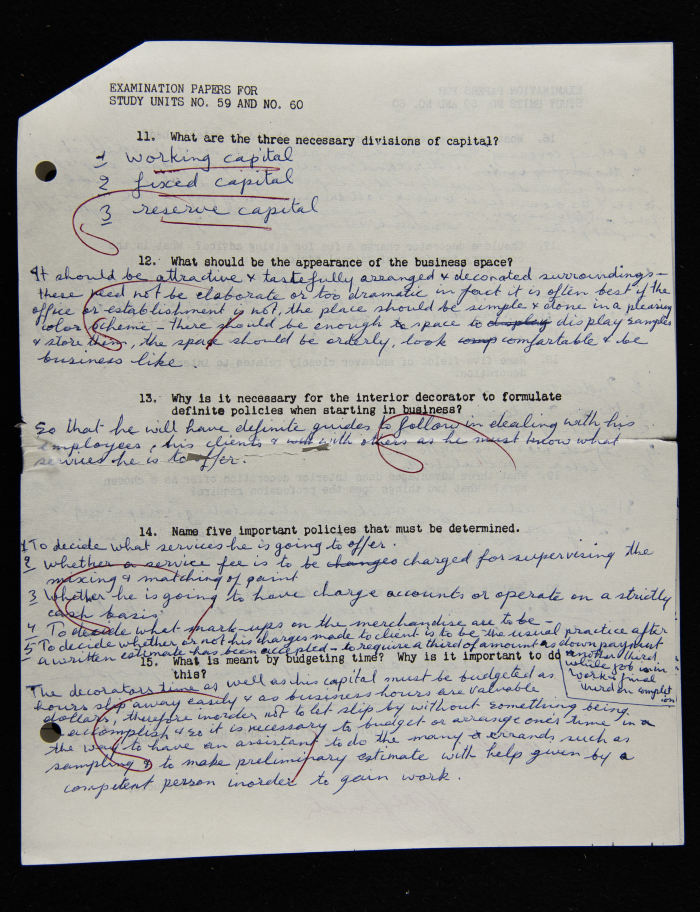 EXAMINATION PAPERS FOR
STUDY UNITS NO. 59 AND NO. 60
11. What are the three necessary divisions of capital?
1 working capital
2 fixed capital
3 reserve capital
12. What should be the appearance of the business space?
It should be attractive & tastefully arranged & decorated surroundings –
these need not be elaborate or too dramatic in fact it is often best if the
office or establishment is not, the place should be simple & done in a pleasing
color scheme – there should be enough space to display display samples
& store them, the space should be orderly, look comfortable & be
business like.
13. Why is it necessary for the interior decorator to formulate
definite policies when starting in business?
So that he will have definite guides to follow in dealing with his
employees, his clients & with others as he must know what
services he is to offer.
14. Name five important policies that must be determined.
1 To decide what services he is going to offer.
2 Whether a service fee is to be changes charged for supervising the
mixing & matching of paint
3 Whether he is going to have charge accounts or operate on a strictly
cash basis
4 To decide what mark-ups on the merchandise are to be –
5 To decide whether or not his charges made to client is to be the usual practice after
a written estimate has been accepted – to require a third of amount as down payment
another third
while job is in
work & final
third on completion
15. What is meant by budgeting time? Why is it important to do
this?
The decorators time as well as his capital must be budgeted as
hours slip away easily & as business hours are valuable
dollars, therefore inorder not to let slip by without something being
accomplish & so it is necessary to budget or arrange one's time in a
the way to have an assistant to do the many errands such as
sampling & to make preliminary estimate with help given by a
competent person inorder to gain work.